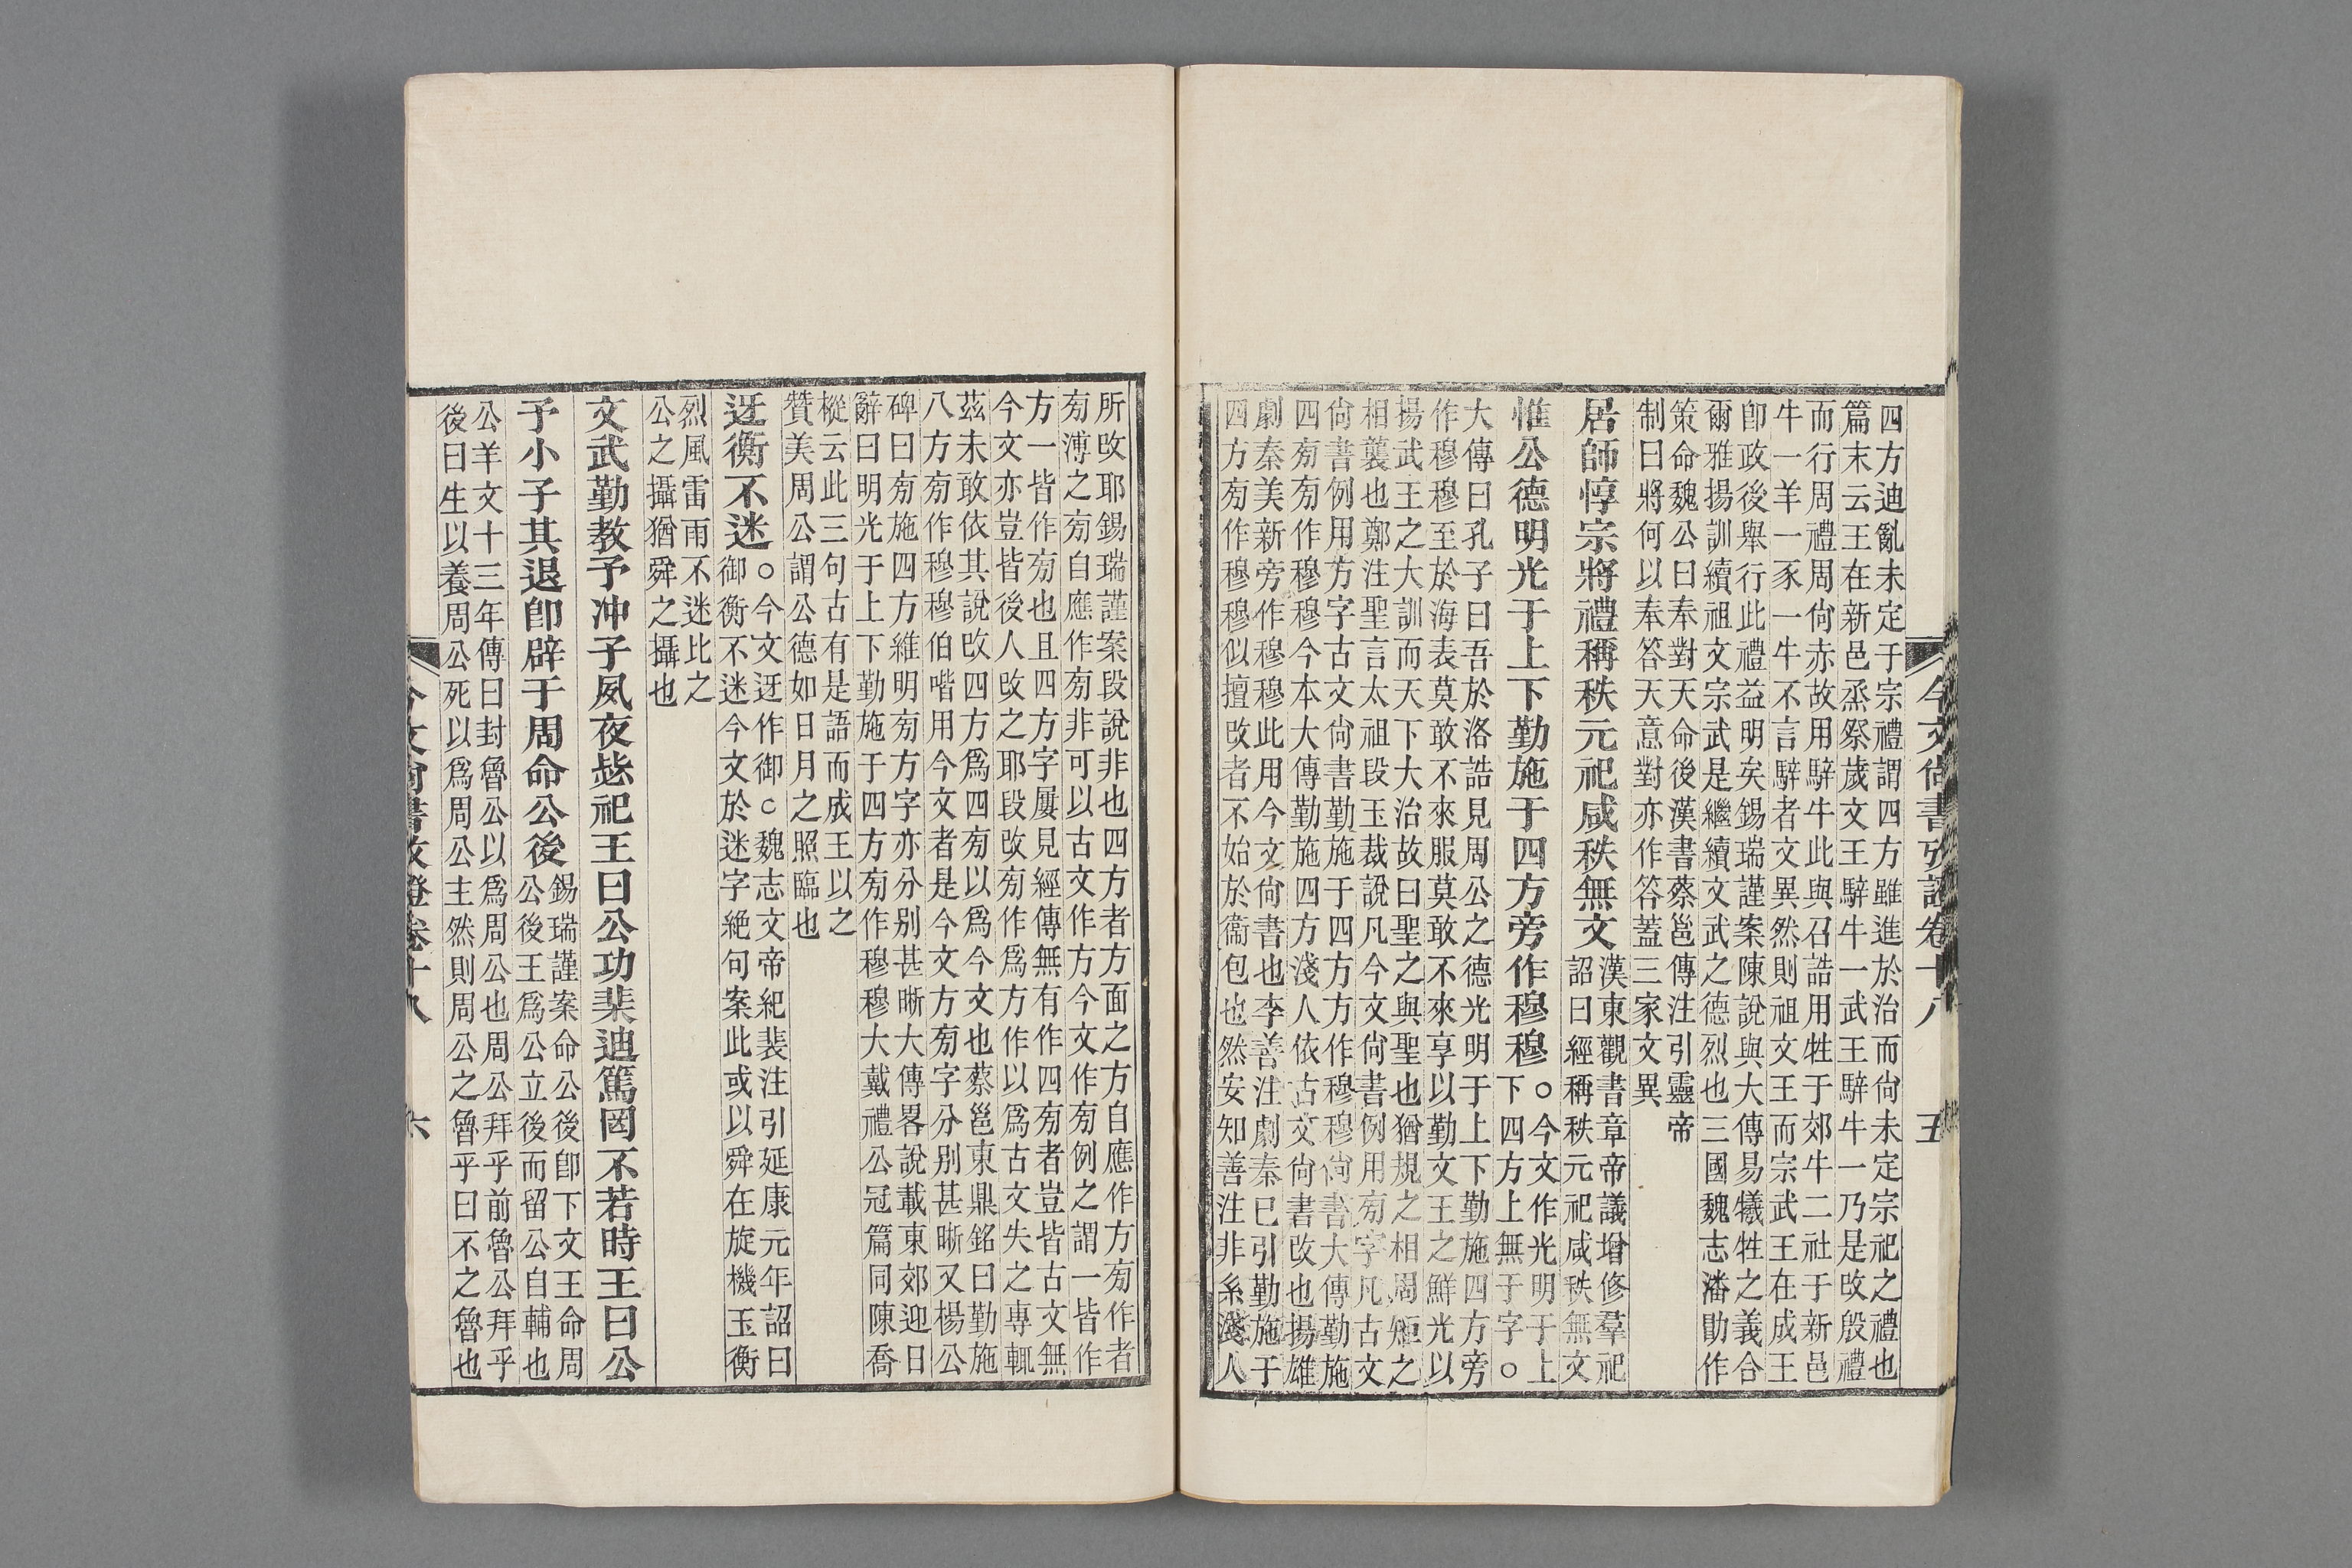 今文尚書攷證卷十八
五
四方迪亂未定于宗禮謂四方雖進於治而尙未定宗祀之禮也
篇末云王在新邑烝祭歲文王騂牛一武王騂牛一乃是改殷禮
而行周禮周尙赤故用騂牛此與召誥用牲于郊牛二社于新邑
牛一羊一豕一牛不言騂者文異然則祖文王而宗武王在成王
卽政後舉行此禮益明矣錫瑞謹案陳說與大傳易犧牲之義合
爾雅揚訓續祖文宗武是繼續文武之德烈也三國魏志潘勖作
策命魏公曰奉對天命後漢書蔡邕傳注引靈帝
制曰將何以奉答天意對亦作答蓋三家文異
居師惇宗將禮稱秩元祀咸秩無文
漢東觀書章帝議增修羣祀
詔曰經稱秩元祀咸秩無文
惟公德明光于上下勤施于四方旁作穆穆
○今文作光明于上
下四方上無于字○
大傳曰孔子曰吾於洛誥見周公之德光明于上下勤施四方旁
作穆穆至於海表莫敢不來服莫敢不來享以勤文王之鮮光以
揚武王之大訓而天下大治故曰聖之與聖也猶規之相周矩之
相襲也鄭注聖言太祖段玉裁說凡今文尙書例用㫄字凡古文
尙書例用方字古文尙書勤施于四方方作穆穆尙書大傳勤施
四㫄㫄作穆穆今本大傳勤施四方淺人依古文尙書改也揚雄
劇秦美新旁作穆穆此用今文尙書也李善注劇秦已引勤施于
四方㫄作穆穆似擅改者不始於衞包也然安知善注非系淺人
所改耶錫瑞謹案段說非也四方者方面之方自應作方㫄作者
㫄溥之㫄自應作㫄非可以古文作方今文作㫄例之謂一皆作
方一皆作㫄也且四方字屢見經傳無有作四㫄者豈皆古文無
今文亦豈皆後人改之耶段改㫄作爲方作以爲古文失之專輒
茲未敢依其說改四方爲四㫄以爲今文也蔡邕東鼎銘曰勤施
八方㫄作穆穆伯喈用今文者是今文方㫄字分別甚晰又楊公
碑曰㫄施四方維明㫄方字亦分別甚晰大傳畧說載東郊迎日
辭曰明光于上下勤施于四方㫄作穆穆大戴禮公冠篇同陳喬
樅云此三句古有是語而成王以之
贊美周公謂公德如日月之照臨也
迓衡不迷
○今文迓作御○魏志文帝紀裴注引延康元年詔曰
御衡不迷今文於迷字絕句案此或以舜在旋機玉衡
烈風雷雨不迷比之
公之攝猶舜之攝也
文武勤教予沖子夙夜毖祀王曰公功棐迪篤罔不若時王曰公
予小子其退卽辟于周命公後
錫瑞謹案命公後卽下文王命周
公後王爲公立後而留公自輔也
公羊文十三年傳曰封魯公以爲周公也周公拜乎前魯公拜乎
後曰生以養周公死以爲周公主然則周公之魯乎曰不之魯也
今文尙書攷證卷十八
六